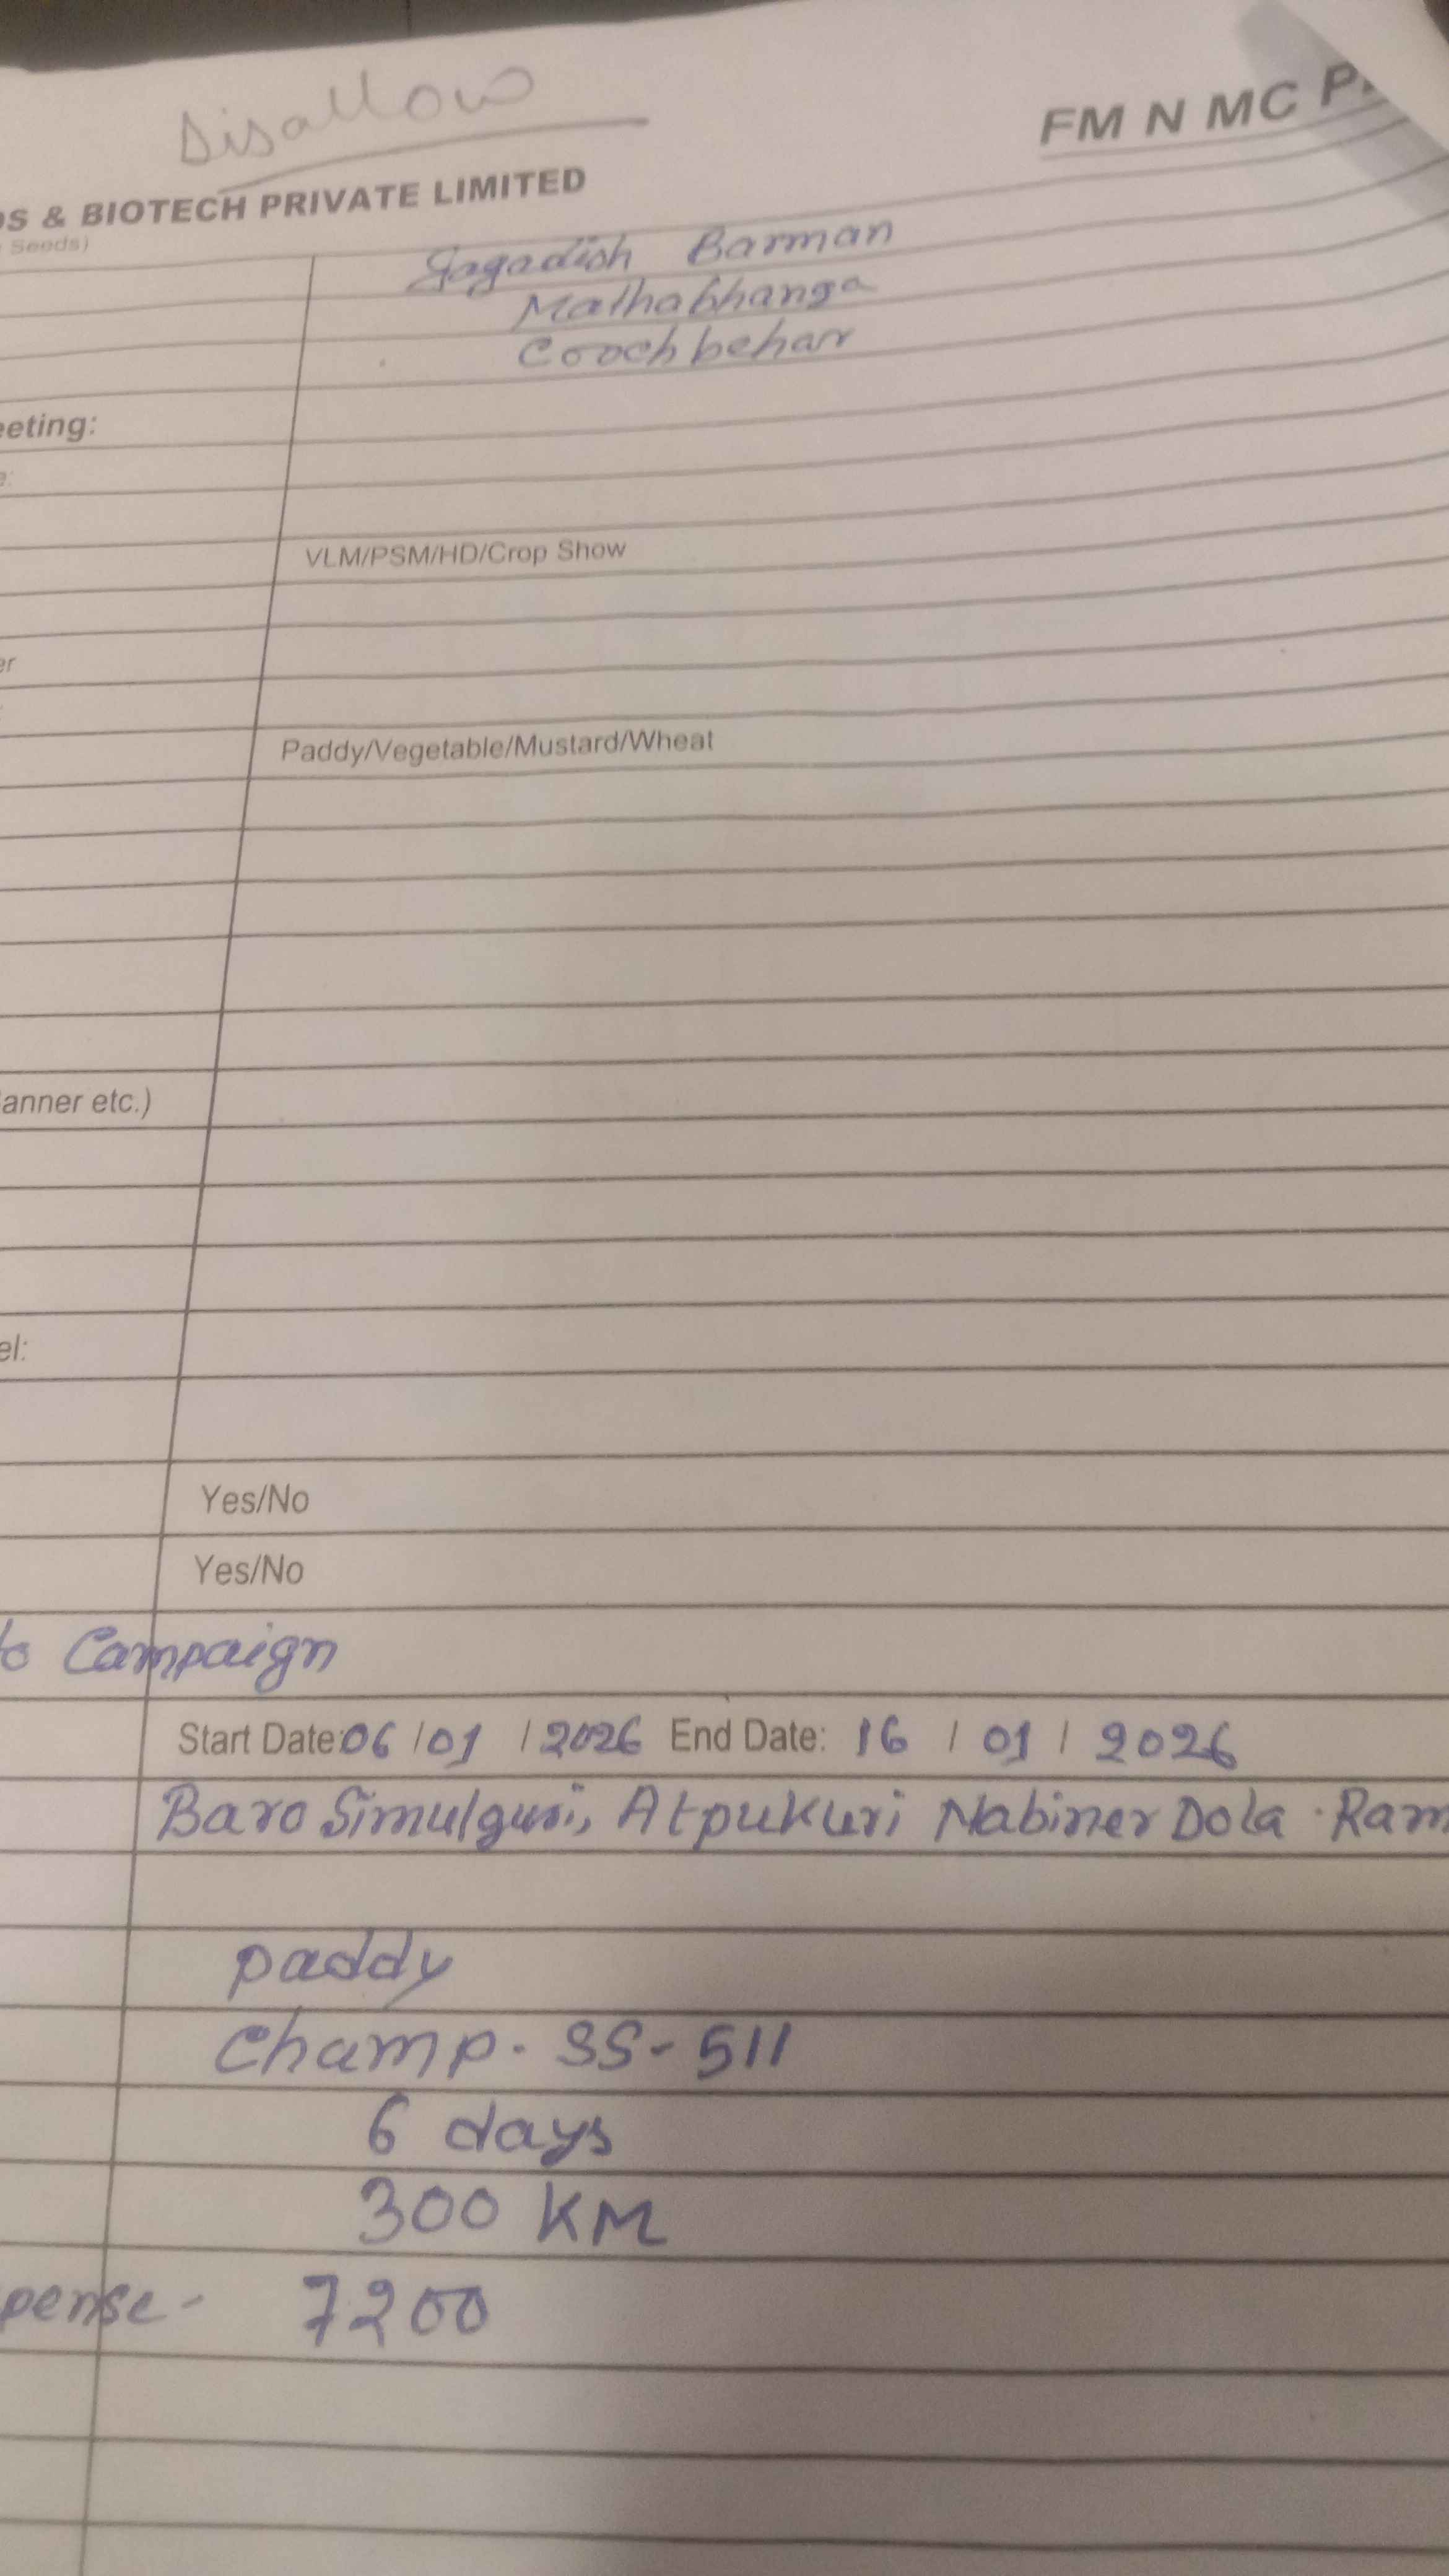 Disallow
FM N MC
& BIOTECH PRIVATE LIMITED
Seeds)
Jagadish Barman
Mathabhanga
Coochbehar
eeting:
e:
VLM/PSM/HD/Crop Show
er
Paddy/Vegetable/Mustard/Wheat
anner etc.)
el:
Yes/No
Yes/No
Campaign
Start Date: 06/01/2026 End Date: 16/01/2026
Baro Simulguri, Atpukuri Nabiner Dola Ram
paddy
Champ. SS-511
6 days
300 KM
pense- 7200